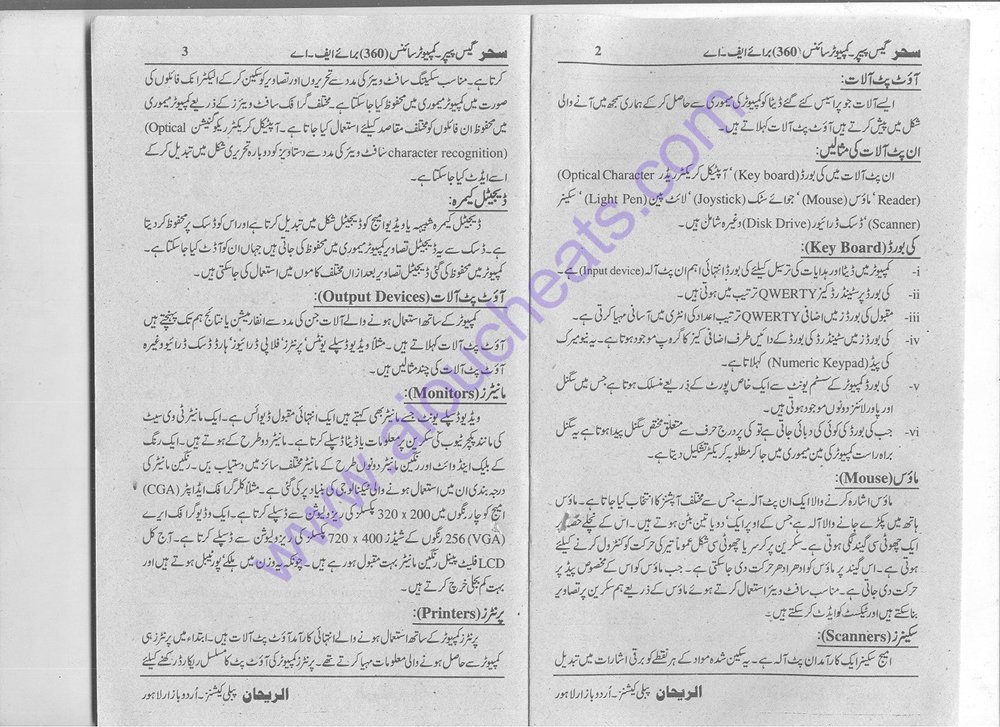 سحر گیس پیپر۔ کمپیوٹر سائنس (360) برائے ایف۔اے 2
آؤٹ پٹ آلات:
ایسے آلات جو پراسیس کئے گئے ڈیٹا کو کمپیوٹر کی میموری سے حاصل کر کے ہماری سمجھ میں آنے والی
شکل میں پیش کرتے ہیں آؤٹ پٹ آلات کہلاتے ہیں۔
ان پٹ آلات کی مثالیں:
ان پٹ آلات میں کی بورڈ (Key board)، آپٹیکل کریکٹر ریڈر (Optical Character
Reader)، ماؤس (Mouse)، جوائے سٹک (Joystick)، لائٹ پین (Light Pen)، سکینر
(Scanner)، ڈسک ڈرائیور (Disk Drive) وغیرہ شامل ہیں۔
کی بورڈ (Key Board):
i- کمپیوٹر میں ڈیٹا اور ہدایات کی ترسیل کیلئے کی بورڈ انتہائی اہم ان پٹ آلہ (Input device) ہے۔
ii- کی بورڈ پر سٹینڈرڈ کیز QWERTY ترتیب میں ہوتی ہیں۔
iii- مقبول کی بورڈز میں اضافی QWERTY ترتیب اعداد کی انٹری میں آسانی مہیا کرتی ہے۔
iv- کی بورڈز میں سٹینڈرڈ کی بورڈ کے دائیں طرف اضافی کیز کا گروپ موجود ہوتا ہے۔ یہ نیومیرک
کی پیڈ (Numeric Keypad) کہلاتا ہے۔
v- کی بورڈ کمپیوٹر کے سسٹم یونٹ سے ایک خاص پورٹ کے ذریعے منسلک ہوتا ہے جس میں سگنل
اور پاور لائنز دونوں موجود ہوتی ہیں۔
vi- جب کی بورڈ کی کوئی کی دبائی جاتی ہے تو کی پر درج حرف سے متعلق مختص سگنل پیدا ہوتا ہے یہ سگنل
براہ راست کمپیوٹر کی مین میموری میں جا کر مطلوبہ کریکٹر تشکیل دیتا ہے۔
ماؤس (Mouse):
ماؤس اشارہ کرنے والا ایک ان پٹ آلہ ہے جس سے مختلف آپشنز کا انتخاب کیا جاتا ہے۔ ماؤس
ہاتھ میں پکڑے جانے والا آلہ ہے جس کے اوپر ایک دو یا تین بٹن ہوتے ہیں۔ اس کے نچلے حصہ پر
ایک چھوٹی سی گیند لگی ہوتی ہے۔ سکرین پر کرسر یا چھوٹی سی شکل عموماً تیر کی حرکت کو کنٹرول کرنے کیلئے
ہوتی ہے۔ اس گیند پر ماؤس کو ادھر ادھر حرکت دی جا سکتی ہے۔ جب ماؤس کو اس کے مخصوص پیڈ پر
حرکت دی جاتی ہے۔ مناسب سافٹ ویئر استعمال کرتے ہوئے ماؤس کے ذریعے ہم سکرین پر تصاویر
بنا سکتے ہیں اور ٹیکسٹ کو ایڈٹ کر سکتے ہیں۔
سکینرز (Scanners):
امیج سکینر ایک کارآمد ان پٹ آلہ ہے۔ یہ سکین شدہ مواد کے ہر نقطے کو برقی اشارات میں تبدیل
الریحان پبلی کیشنز۔ اُردو بازار لاہور
سحر گیس پیپر۔ کمپیوٹر سائنس (360) برائے ایف۔اے 3
کرتا ہے۔ مناسب سکیننگ سافٹ ویئر کی مدد سے تحریروں اور تصاویر کو سکین کر کے الیکٹرانک فائلوں کی
صورت میں کمپیوٹر میموری میں محفوظ کیا جا سکتا ہے۔ مختلف گرافک سافٹ ویئرز کے ذریعے کمپیوٹر میموری
میں محفوظ ان فائلوں کو مختلف مقاصد کیلئے استعمال کیا جاتا ہے۔ آپٹیکل کریکٹر ریکوگنیشن (Optical
character recognition) سافٹ ویئر کی مدد سے دستاویز کو دوبارہ تحریری شکل میں تبدیل کر کے
اسے ایڈٹ کیا جا سکتا ہے۔
ڈیجیٹل کیمرہ:
ڈیجیٹل کیمرہ شبیہہ یا ویڈیو امیج کو ڈیجیٹل شکل میں تبدیل کرتا ہے اور اس کو ڈسک پر محفوظ کر دیتا
ہے۔ ڈسک سے یہ ڈیجیٹل تصاویر کمپیوٹر میموری میں محفوظ کی جاتی ہیں جہاں ان کو آڈٹ کیا جا سکتا ہے۔
کمپیوٹر میں محفوظ کی گئی ڈیجیٹل تصاویر بعد ازاں مختلف کاموں میں استعمال کی جا سکتی ہیں۔
آؤٹ پٹ آلات (Output Devices):
کمپیوٹر کے ساتھ استعمال ہونے والے آلات جن کی مدد سے انفارمیشن یا نتائج ہم تک پہنچتے ہیں
آؤٹ پٹ آلات کہلاتے ہیں۔ مثلاً ویڈیو ڈسپلے یونٹس، پرنٹرز، فلاپی ڈرائیوز، ہارڈ ڈسک ڈرائیو وغیرہ
آؤٹ پٹ آلات کی چند مثالیں ہیں۔
مانیٹرز (Monitors):
ویڈیو ڈسپلے یونٹ جسے مانیٹر بھی کہتے ہیں ایک انتہائی مقبول ڈیوائس ہے۔ ایک مانیٹر ٹی وی سیٹ
کی مانند پکچر ٹیوب کی سکرین پر معلومات یا ڈیٹا ڈسپلے کرتا ہے۔ مانیٹر دو طرح کے ہوتے ہیں۔ ایک رنگ
کے بلیک اینڈ وائٹ اور رنگین مانیٹر دونوں طرح کے مانیٹر مختلف سائز میں دستیاب ہیں۔ رنگین مانیٹر کی
درجہ بندی ان میں استعمال ہونے والی ٹیکنالوجی کی بنیاد پر کی گئی ہے۔ مثلاً کلر گرافک ایڈاپٹر (CGA)
امیج کو چار رنگوں میں 200 x 320 پکسلز کی ریزولیوشن سے ڈسپلے کرتا ہے۔ ایک وڈیو گرافک ایرے
(VGA) 256 رنگوں کے شیڈز 400 x 720 پکسلز کی ریزولیوشن سے ڈسپلے کرتے ہیں۔ آج کل
LCD فلیٹ پینل رنگین مانیٹر بہت مقبول ہو رہے ہیں۔ چونکہ یہ وزن میں ہلکے، پورٹیبل ہوتے ہیں اور
بہت کم بجلی خرچ کرتے ہیں۔
پرنٹرز (Printers):
پرنٹرز کمپیوٹر کے ساتھ استعمال ہونے والے انتہائی کارآمد آؤٹ پٹ آلات ہیں۔ ابتداء میں پرنٹرز ہی
کمپیوٹر سے حاصل ہونے والی معلومات مہیا کرتے تھے۔ پرنٹرز کمپیوٹر کی آؤٹ پٹ کا مسلسل ریکارڈ رکھنے کیلئے
الریحان پبلی کیشنز۔ اُردو بازار لاہور
www.aioucheats.com